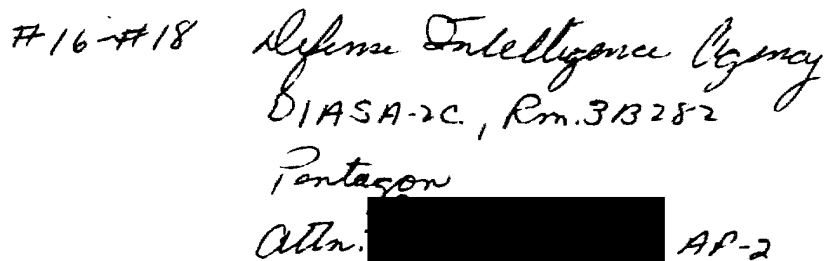 #16-#18 Defense Intelligence Agency
DIASA-2C, Rm. 3B282
Pentagon
Attn: AP-2